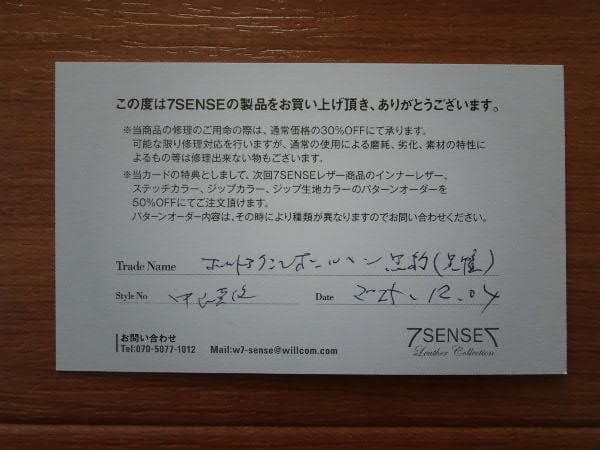 この度は7SENSEの製品をお買い上げ頂き、ありがとうございます。
※当商品の修理のご用命の際は、通常価格の30%OFFにて承ります。
可能な限り修理対応を行いますが、通常の使用による磨耗、劣化、素材の特性に
よるもの等は修理出来ない物もございます。
※当カードの特典としまして、次回7SENSEレザー商品のインナーレザー、
ステッチカラー、ジップカラー、ジップ生地カラーのパターンオーダーを
50%OFFにてご注文頂けます。
パターンオーダー内容は、その時により種類が異なりますのでお問い合わせください。
Trade Name
Style No
Date 12.04
お問い合わせ
Tel:070-5077-1012 Mail:w7-sense@willcom.com
7SENSE7
Leather Collection